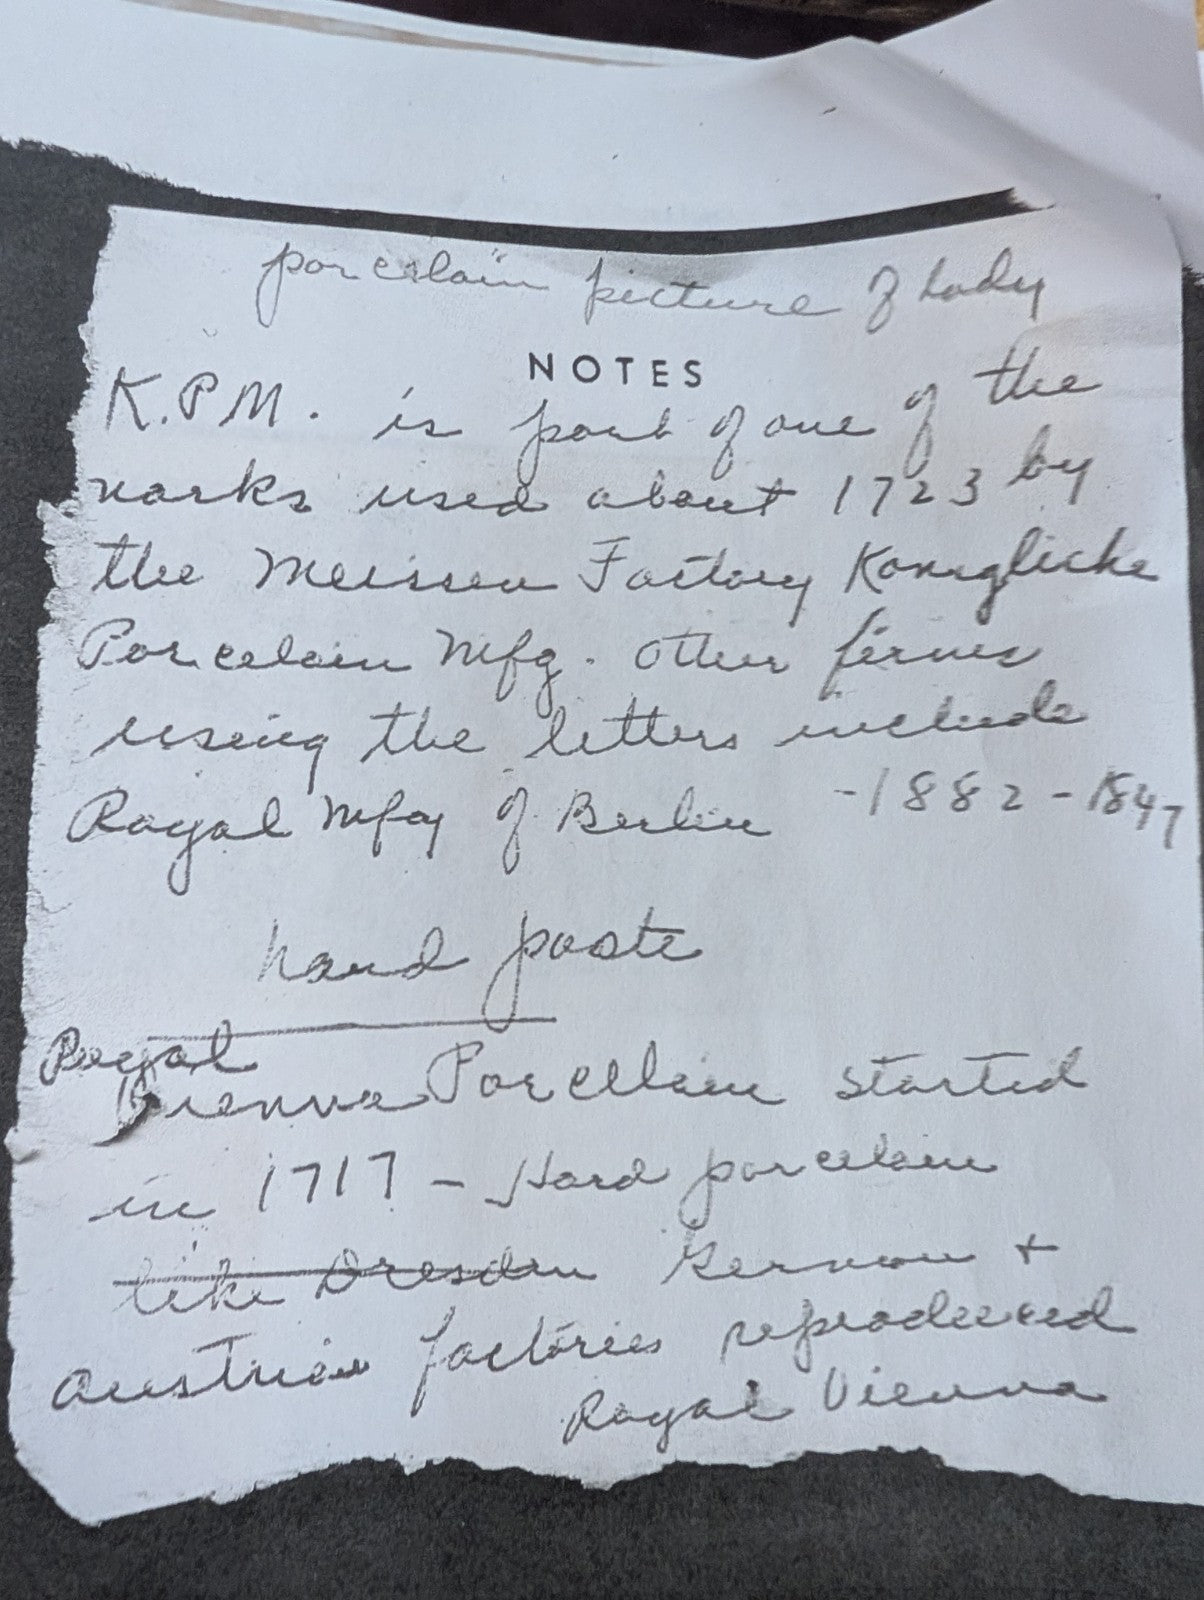 porcelain picture of Lady
NOTES
K.P.M. is part of one of the
marks used about 1723 by
the Meissen Factory Koneglicke
Porcelain Mfg. Other firms
using the letters include
Royal Mfg of Berlin - 1882 - 1847
hard paste
Royal
Vienna Porcellain started
in 1717 - Hard porcelain
like Dresden German +
Austrian factories reproduced
Royal Vienna